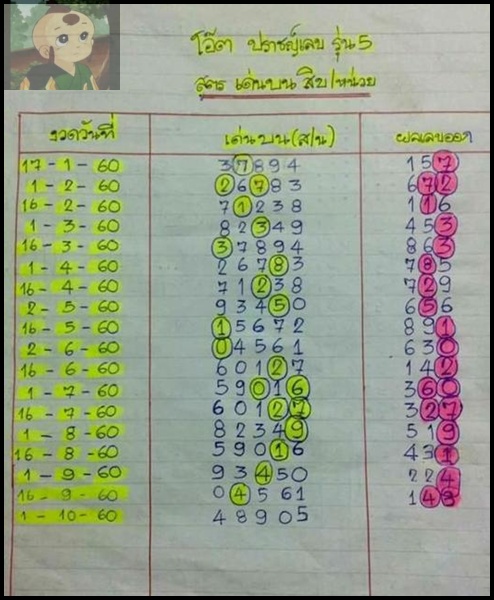 โอ๊ต ปราชญ์เลข รุ่น 5
สูตร เด่นบน สิบ/หน่วย
งวดวันที่ เด่นบน(ส/น) ผลเลขออก
17 - 1 - 60 3 7 8 9 4 1 5 7
1 - 2 - 60 2 6 7 8 3 6 7 2
16 - 2 - 60 7 1 2 3 8 7 1 6
1 - 3 - 60 8 2 3 4 9 4 5 3
16 - 3 - 60 3 7 8 9 4 8 6 3
1 - 4 - 60 2 6 7 8 3 7 8 5
16 - 4 - 60 7 1 2 3 8 7 2 9
2 - 5 - 60 9 3 4 5 0 6 5 6
16 - 5 - 60 1 5 6 7 2 8 9 1
2 - 6 - 60 0 4 5 6 1 6 3 0
16 - 6 - 60 6 0 1 2 7 1 4 2
1 - 7 - 60 5 9 0 1 6 3 6 0
16 - 7 - 60 6 0 1 2 7 3 2 7
1 - 8 - 60 8 2 3 4 9 5 1 9
16 - 8 - 60 5 9 0 1 6 4 3 1
1 - 9 - 60 9 3 4 5 0 2 2 4
16 - 9 - 60 0 4 5 6 1 1 4
1 - 10 - 60 4 8 9 0 5